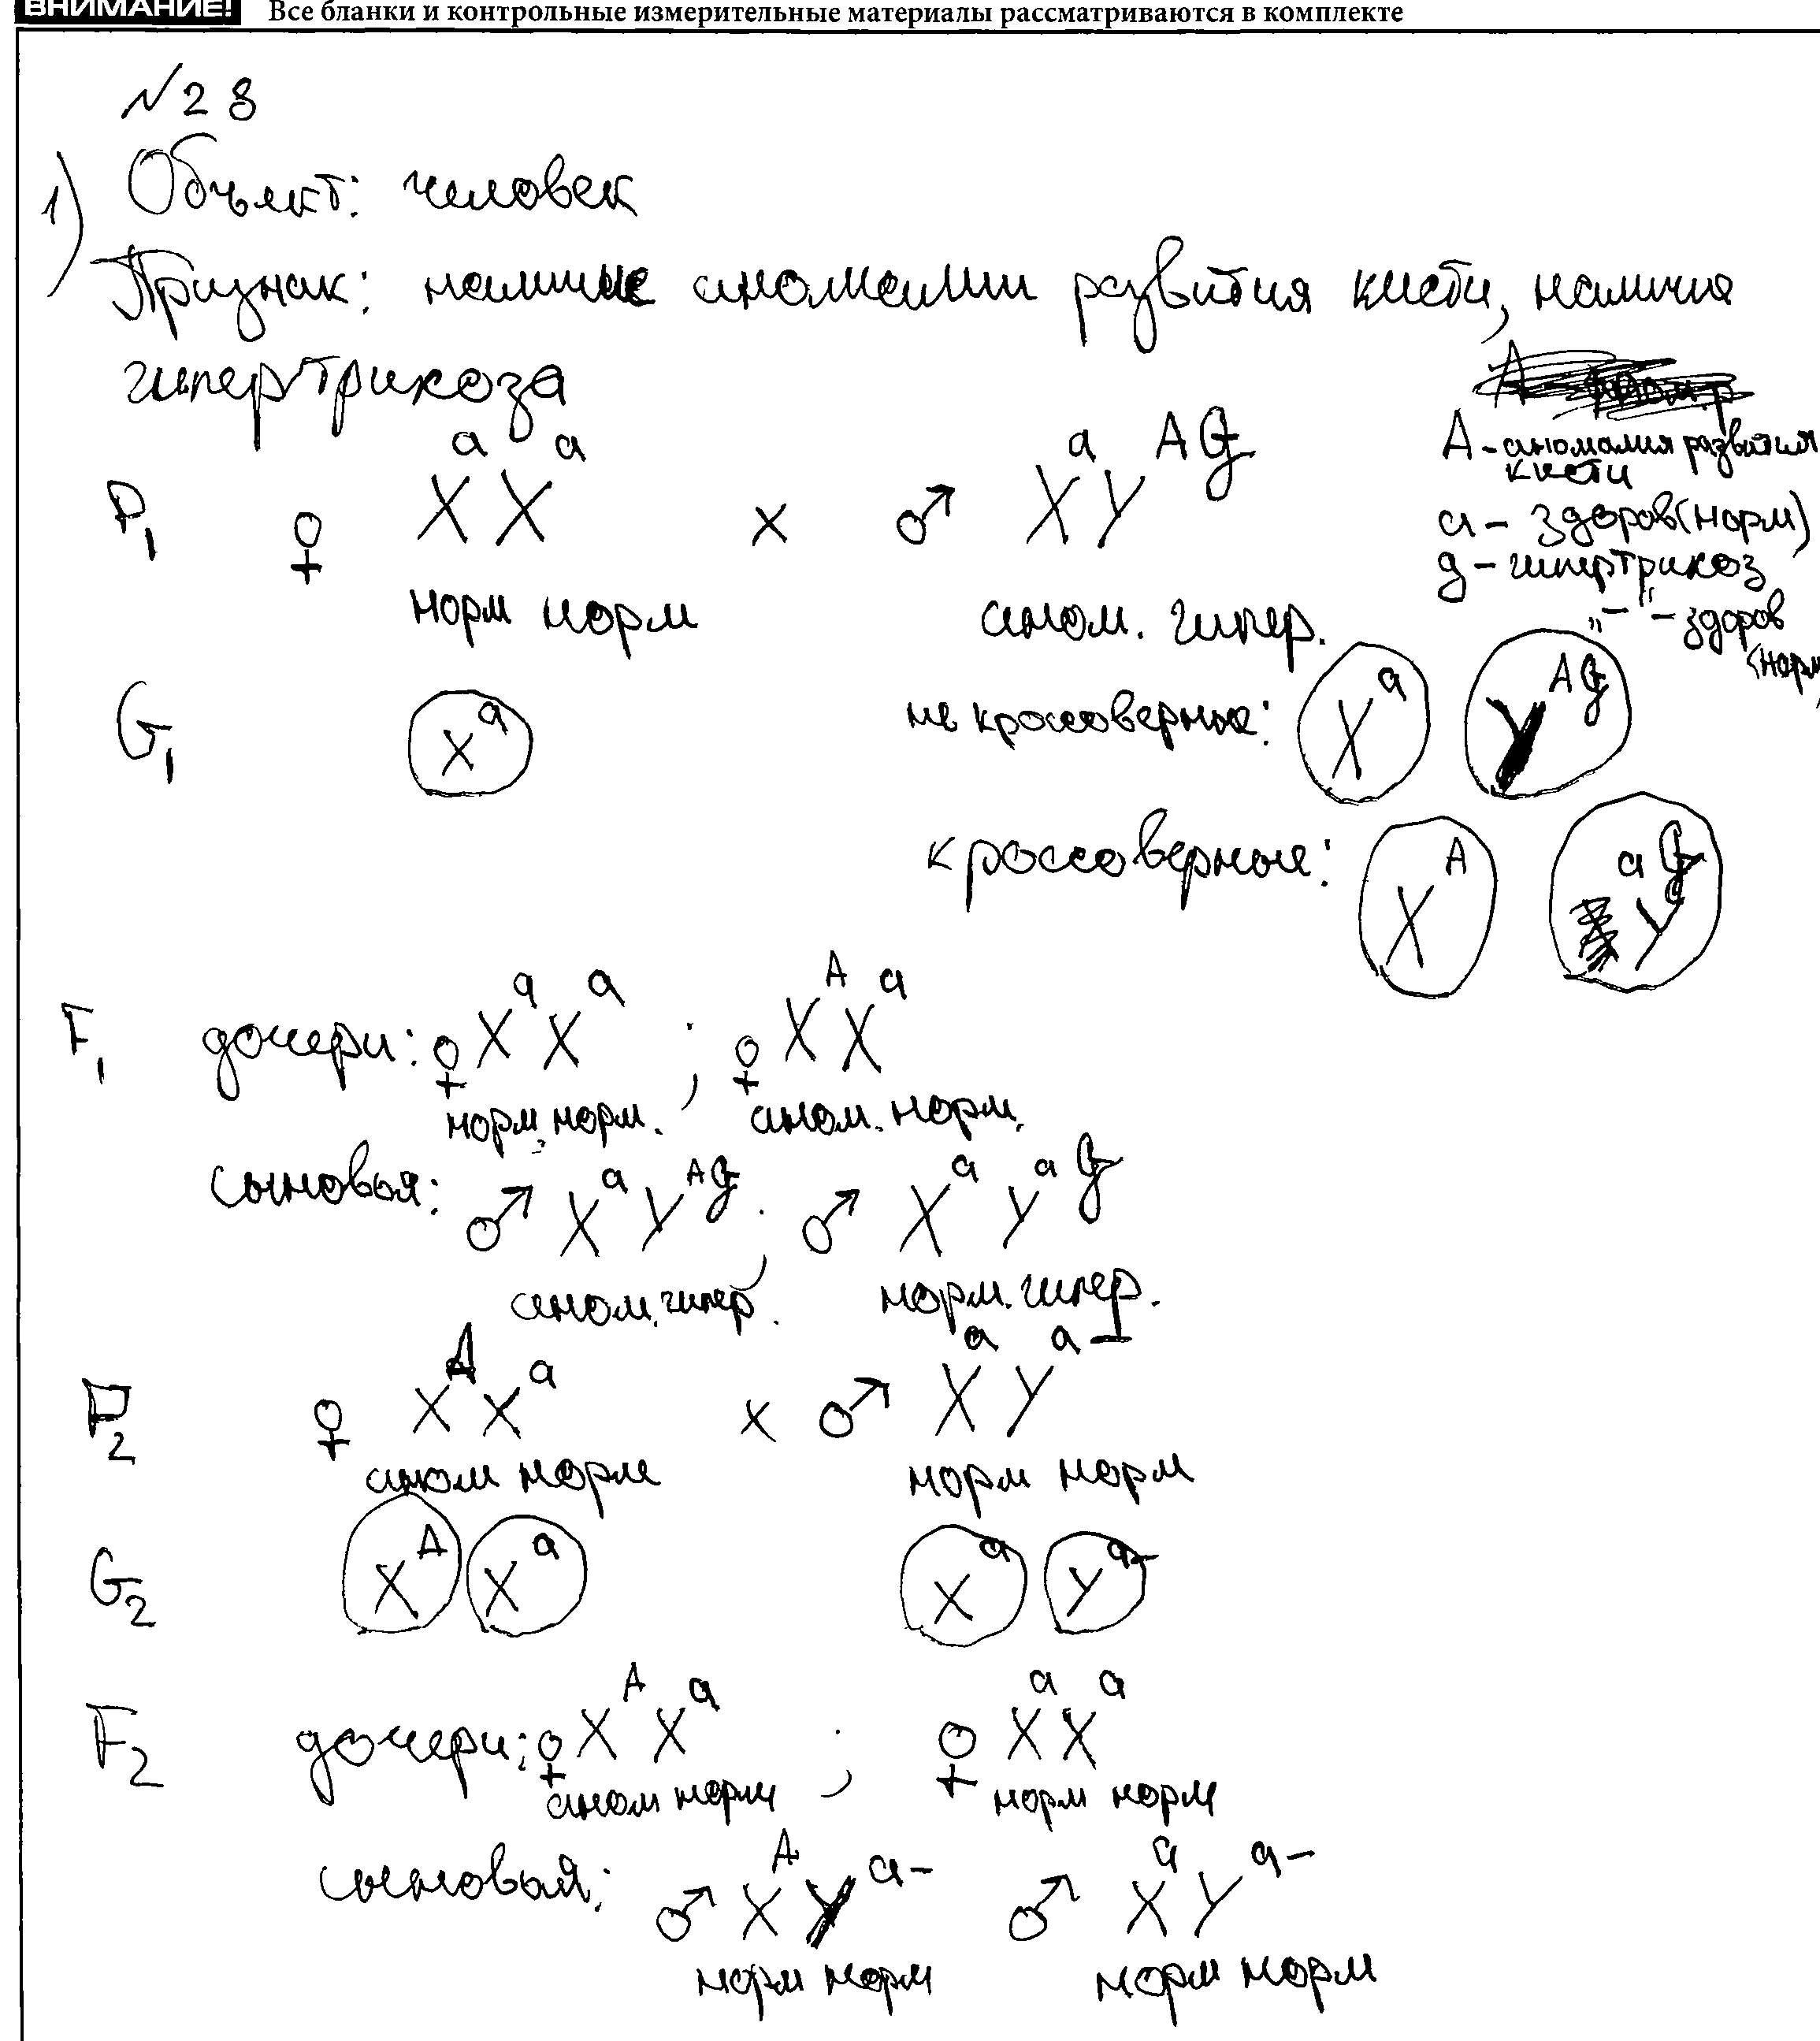 ВНИМАНИЕ! Все бланки и контрольные измерительные материалы рассматриваются в комплекте
№28
1) Объект: человек
Признак: наличие аномалии развития кисти, наличия
гипертрикоза
A - аномалия развития
кисти
a - здоров(норм)
g - гипертрикоз
„-“ - здоров
(норм
P₁ ♀ XᵃXᵃ x ♂ XᵃYᴬg
норм норм аном. гипер.
G₁ Xᵃ не кроссоверные: Xᵃ Yᴬg
кроссоверные: Xᴬ Yᵃg
F₁ дочери: ♀ XᵃXᵃ ; ♀ XᴬXᵃ
норм. норм. аном. норм.
сыновья: ♂ XᵃYᴬg ; ♂ XᵃYᵃg
аном. гипер. норм. гипер.
P₂ ♀ XᴬXᵃ x ♂ XᵃYᵃ⁻
аном норм норм норм
G₂ Xᴬ Xᵃ Xᵃ Yᵃ⁻
F₂ дочери: ♀ XᴬXᵃ ; ♀ XᵃXᵃ
аном норм норм норм
сыновья: ♂ XᴬYᵃ⁻ ♂ XᵃYᵃ⁻
норм норм норм норм